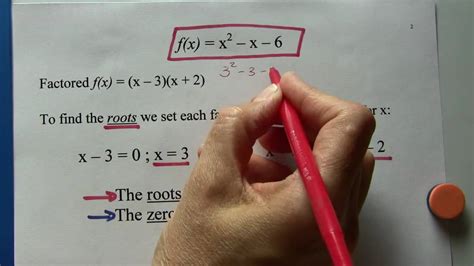 2
f(x) = x² – x – 6
3² - 3 -
Factored f(x) = (x – 3)(x + 2)
To find the roots we set each fa r x:
x – 3 = 0 ; x = 3 - 2
The roots
The zero